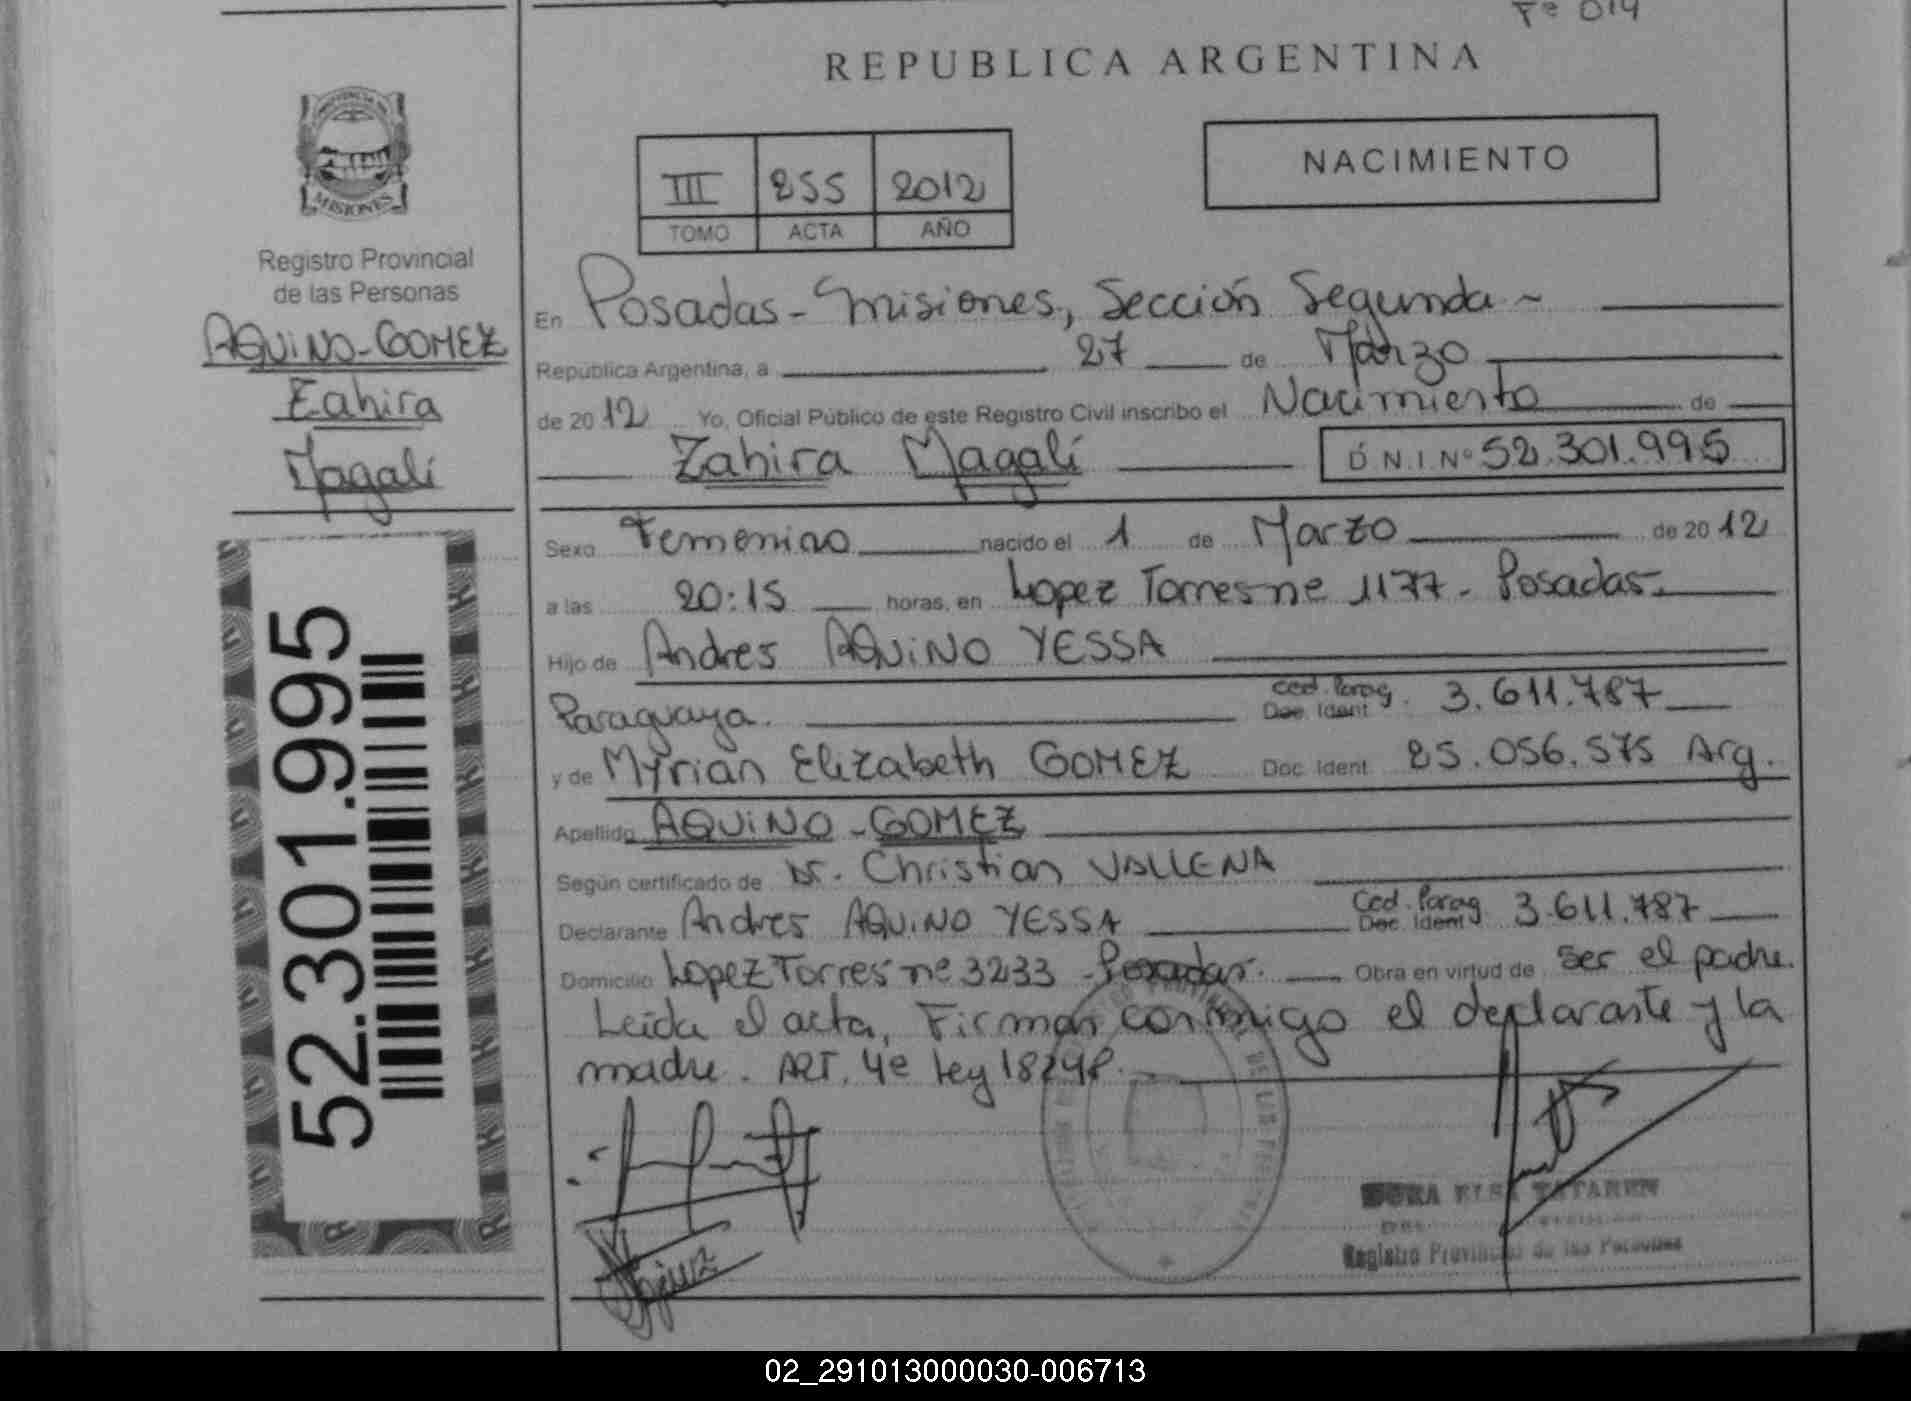 Fº 014
REPUBLICA ARGENTINA
NACIMIENTO
III 255 2012
TOMO ACTA AÑO
PROVINCIA DE
MISIONES
Registro Provincial
de las Personas
AQUINO-GOMEZ
Zahira
Magalí
52.301.995
En Posadas - Misiones, Sección Segunda ~
República Argentina, a 27 de Marzo
de 2012 Yo, Oficial Público de este Registro Civil inscribo el Nacimiento de
Zahira Magalí D.N.I.Nº 52.301.995
Sexo Femenino nacido el 1 de Marzo de 2012
a las 20:15 horas, en Lopez Torres nº 1177 - Posadas.
Hijo de Andres AQUINO YESSA
Paraguaya. Ced. Parag. Doc. Ident 3.611.787
y de Myrian Elizabeth GOMEZ Doc. Ident 25.056.575 Arg.
Apellido AQUINO - GOMEZ
Según certificado de Dr. Christian VALLENA
Declarante Andres AQUINO YESSA Ced. Parag. Doc. Ident 3.611.787
Domicilio Lopez Torres nº 3233 - Posadas. Obra en virtud de ser el padre.
Leída el acta, Firman conmigo el declarante y la
madre. ART. 4º Ley 18248.
ELSA TATAREN
Registro Provincial de las Personas
02_291013000030-006713